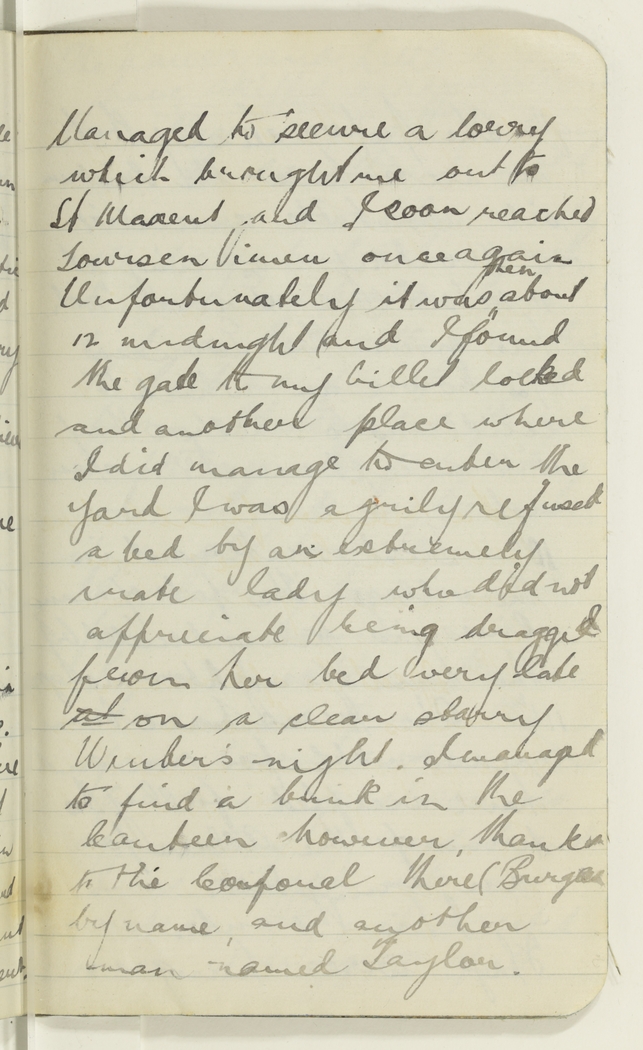 Managed to secure a lorry
which brought me out to
St Maxent, and I soon reached
Toursen Vimeu once again
Unfortunately it was then about
12 midnight and I found
the gate to my billet locked
and another place where
I did manage to enter the
yard I was agrily refused
a bed by an extremely
irate lady who did not
appreciate being dragged
from her bed very late
at on a clear starry
Winter's night. I managed
to find a bunk in the
Canteen however, thanks
to the Corporal there (Burgess
by name, and another
man named Taylor.